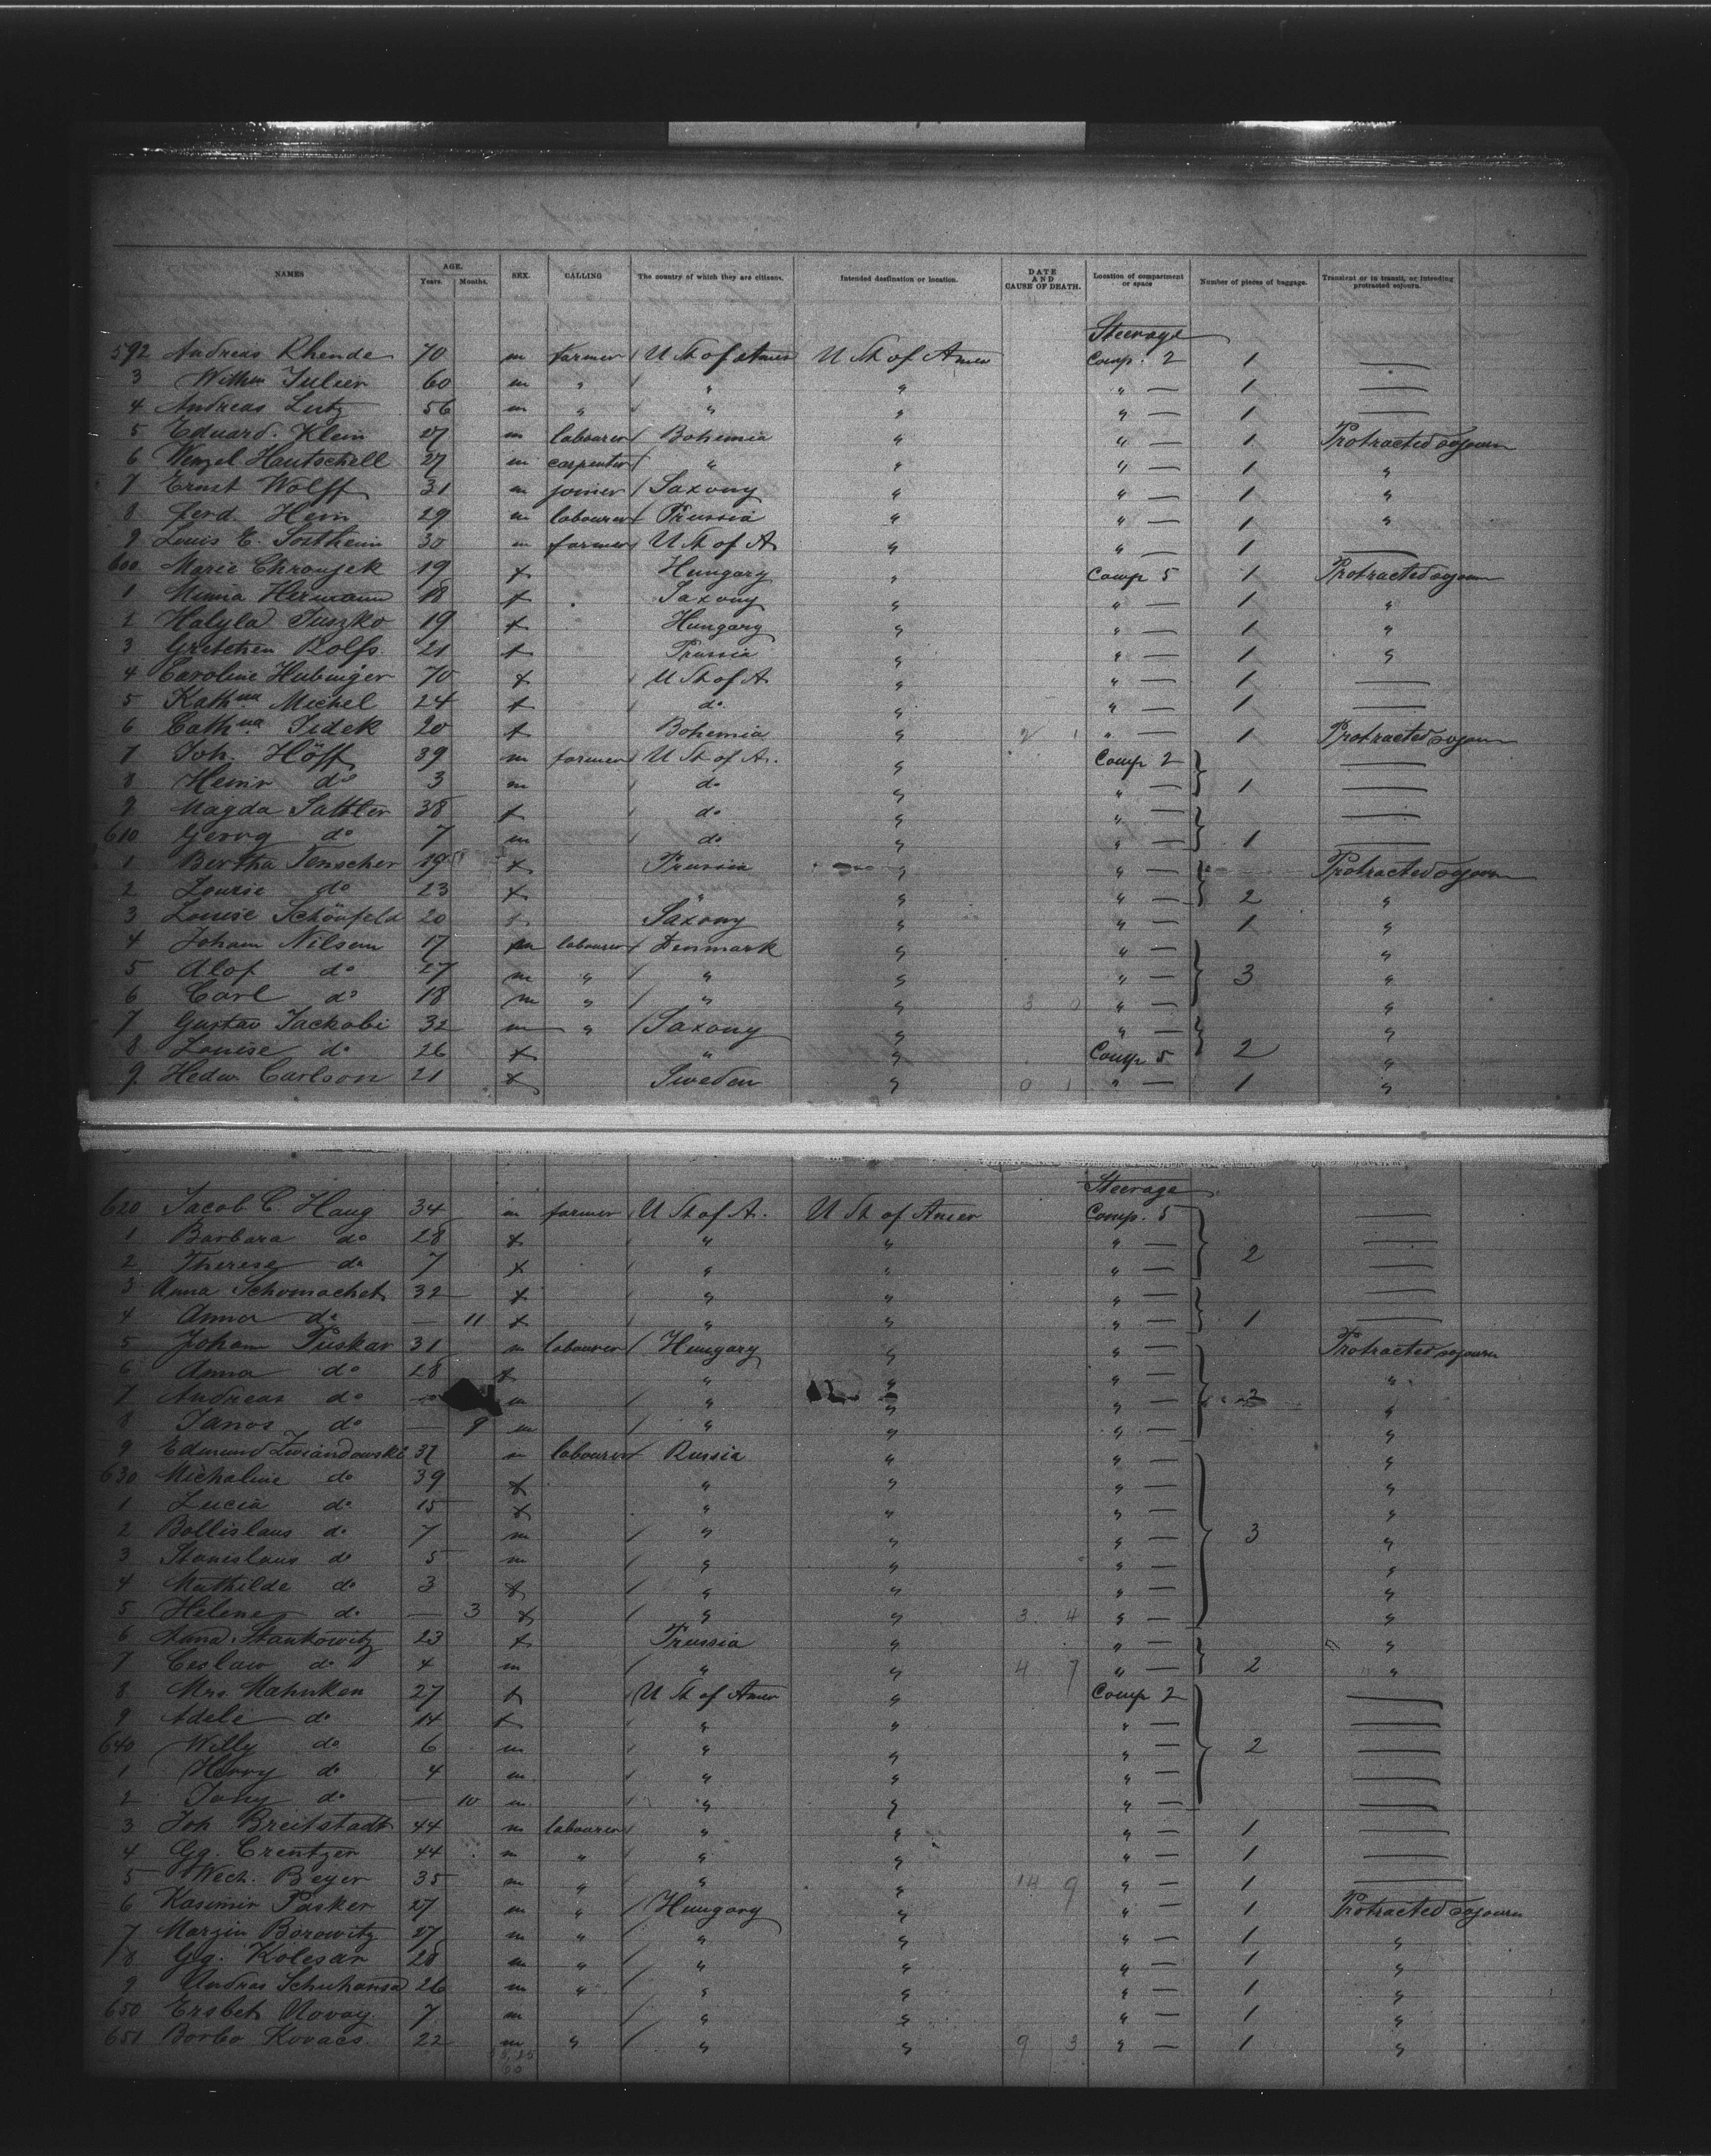 NAMES AGE. Years. Months. SEX. CALLING The country of which they are citizens. Intended destination or location. DATE AND CAUSE OF DEATH. Location of compartment or space Number of pieces of baggage. Transient or in transit, or intending protracted sojourn.
Steerage
592 Andreas Rhende 70 m farmer U St of Amer U St of Amer Comp. 2 1 —
3 Wilhm Julier 60 m " " " " — 1 —
4 Andreas Lutz 56 m " " " " — 1 —
5 Eduard Klein 27 m labourer Bohemia " " — 1 Protracted sojourn
6 Wenzel Hautschell 27 m carpenter " " " — 1 "
7 Ernst Wolff 31 m joiner Saxony " " — 1 "
8 Ferd. Hein 29 m labourer Prussia " " — 1 "
9 Louis E. Sostheim 30 m farmer U St of A " " — 1 —
600 Marie Chroujek 19 f Hungary " Comp 5 1 Protracted sojourn
1 Minna Hermann 18 f Saxony " " — 1 "
2 Halyla Juszko 19 f Hungary " " — 1 "
3 Gretchen Rolfs 21 f Prussia " " — 1 "
4 Caroline Hubinger 70 f U St of A " " — 1 —
5 Kathna Michel 24 f do " " — 1 —
6 Cathna Sidek 20 f Bohemia " 2 1 " — 1 Protracted sojourn
7 Joh. Höff 39 m farmer U St of A. " Comp 2 —
8 Heinr do 3 m do " " — 1 —
9 Magda Sattler 38 f do " " — —
610 Georg do 7 m do " " — 1 —
1 Bertha Jenscher 19 f Prussia " " — Protracted sojourn
2 Lourie do 23 f " " " — 2 "
3 Louise Schönfeld 20 f Saxony " " — 1 "
4 Johann Nilsenn 17 m labourer Denmark " " — "
5 Alof do 27 m " " " " — 3 "
6 Carl do 18 m " " " 3 0 " — "
7 Gustav Jackobi 32 m " Saxony " " — "
8 Louise do 26 f " " Comp 5 2 "
9 Hedw. Carlson 21 f Sweden " 0 1 " — 1 "
Steerage
620 Jacob C. Haug 34 m farmer U St of A. U St of Amer Comp. 5 —
1 Barbara do 28 f " " " — 2 —
2 Therese do 7 f " " " — —
3 Anna Schomachet 32 f " " " — —
4 Anna do — 11 f " " " — 1 —
5 Johann Puskar 31 m labourer Hungary " " — Protracted sojourn
6 Anna do 28 f " " " — "
7 Andreas do — m " " " — "
8 Janos do — 9 m " " " — "
9 Edmund Zwiandowski 37 m labourer Russia " " — "
630 Michaline do 39 f " " " — "
1 Lucia do 15 f " " " — "
2 Bollislaus do 7 m " " " — 3 "
3 Stanislaus do 5 m " " " — "
4 Mathilde do 3 f " " " — "
5 Helene do — 3 f " " 3 4 " — "
6 Anna Stankowitz 23 f Prussia " " — "
7 Ceslaw do 4 m " " 4 7 " — 2 "
8 Mrs. Mahnken 27 f U St of Amer " Comp 2 —
9 Adele do 14 f " " " — —
640 Willy do 6 m " " " — 2 —
1 Harry do 4 m " " " — —
2 Tony do — 10 m " " " — —
3 Joh Breitstadt 44 m labourer " " " — 1 —
4 Gg. Crentzer 44 m " " " " — 1 —
5 Wech. Beyer 35 m " " " 14 9 " — 1 —
6 Kasimir Pasker 27 m " Hungary " " — 1 Protracted sojourn
7 Marzin Borowitz 27 m " " " " — 1 "
8 Gg. Kolesar 28 m " " " " — 1 "
9 Andras Schuhansa 26 m " " " " — 1 "
650 Ersbet Novay 7 m " " " — 1 "
651 Borbo Kovacs 22 m " " " 9 3 " — 1 "